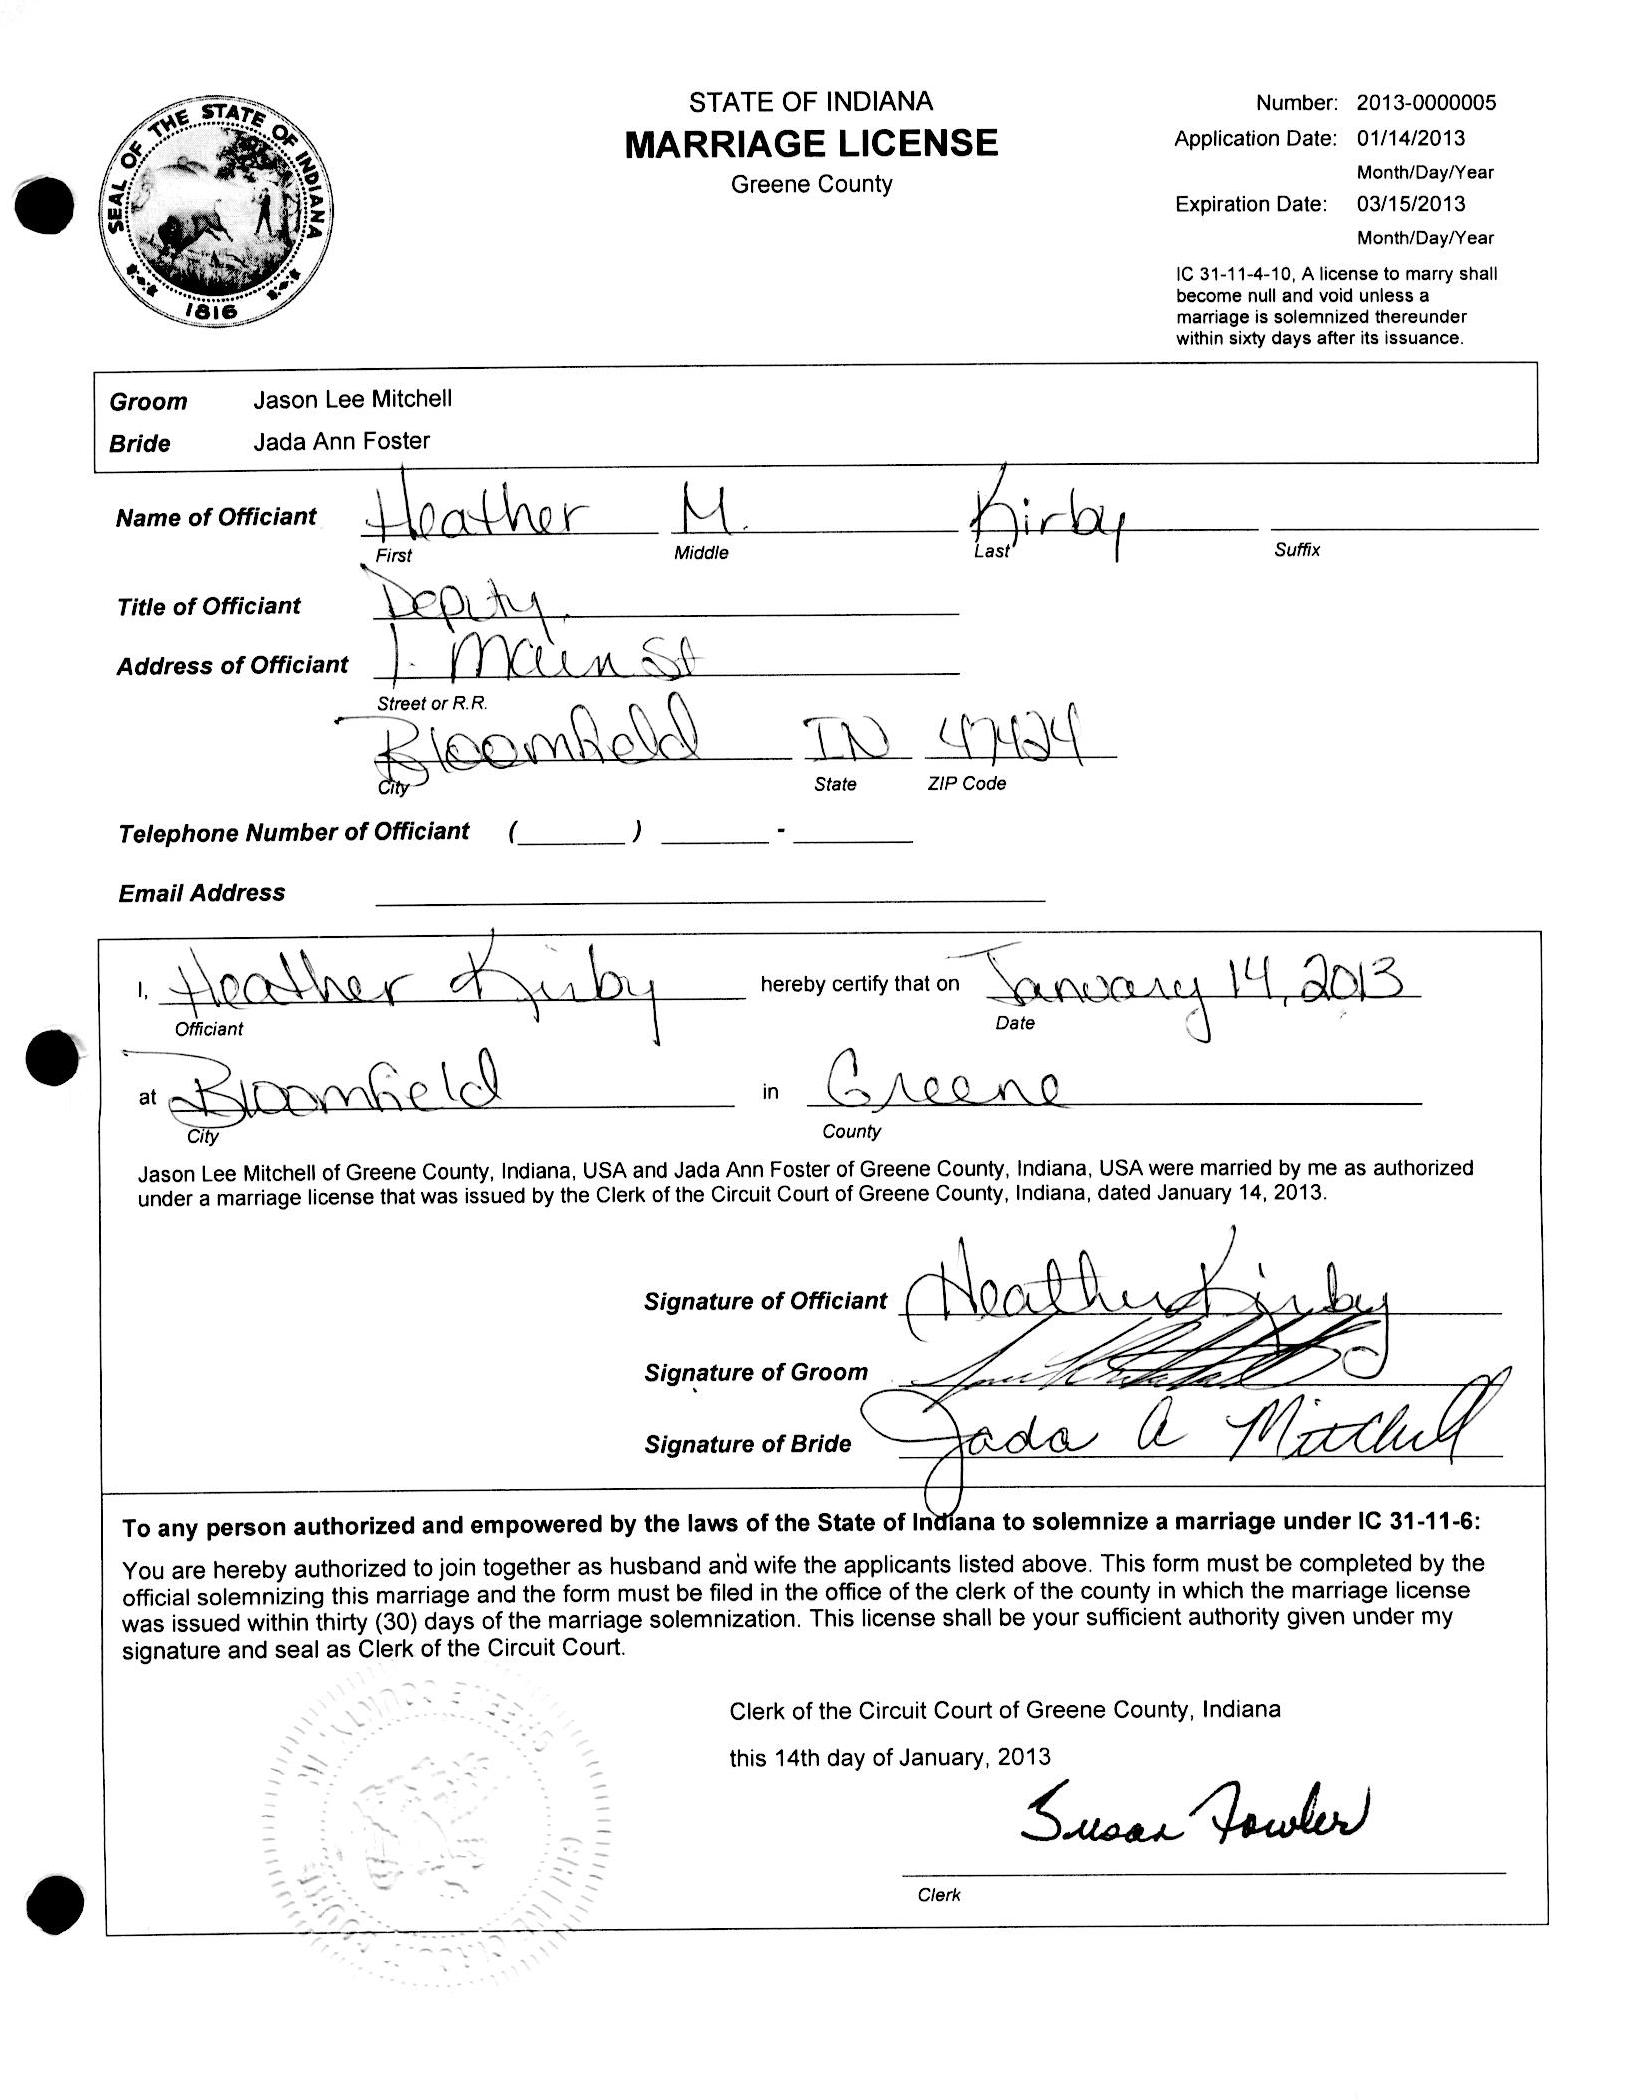 SEAL OF THE STATE OF INDIANA
1816
STATE OF INDIANA
MARRIAGE LICENSE
Greene County
Number: 2013-0000005
Application Date: 01/14/2013
Month/Day/Year
Expiration Date: 03/15/2013
Month/Day/Year
IC 31-11-4-10, A license to marry shall
become null and void unless a
marriage is solemnized thereunder
within sixty days after its issuance.
Groom Jason Lee Mitchell
Bride Jada Ann Foster
Name of Officiant Heather M. Kirby
First Middle Last Suffix
Title of Officiant Deputy
Address of Officiant 1. Main St
Street or R.R.
Bloomfield IN 47424
City State ZIP Code
Telephone Number of Officiant ( ) -
Email Address
I, Heather Kirby hereby certify that on January 14, 2013
Officiant Date
at Bloomfield in Greene
City County
Jason Lee Mitchell of Greene County, Indiana, USA and Jada Ann Foster of Greene County, Indiana, USA were married by me as authorized
under a marriage license that was issued by the Clerk of the Circuit Court of Greene County, Indiana, dated January 14, 2013.
Signature of Officiant Heather Kirby
Signature of Groom
Signature of Bride Jada A Mitchell
To any person authorized and empowered by the laws of the State of Indiana to solemnize a marriage under IC 31-11-6:
You are hereby authorized to join together as husband and wife the applicants listed above. This form must be completed by the
official solemnizing this marriage and the form must be filed in the office of the clerk of the county in which the marriage license
was issued within thirty (30) days of the marriage solemnization. This license shall be your sufficient authority given under my
signature and seal as Clerk of the Circuit Court.
Clerk of the Circuit Court of Greene County, Indiana
this 14th day of January, 2013
Susan Fowler
Clerk